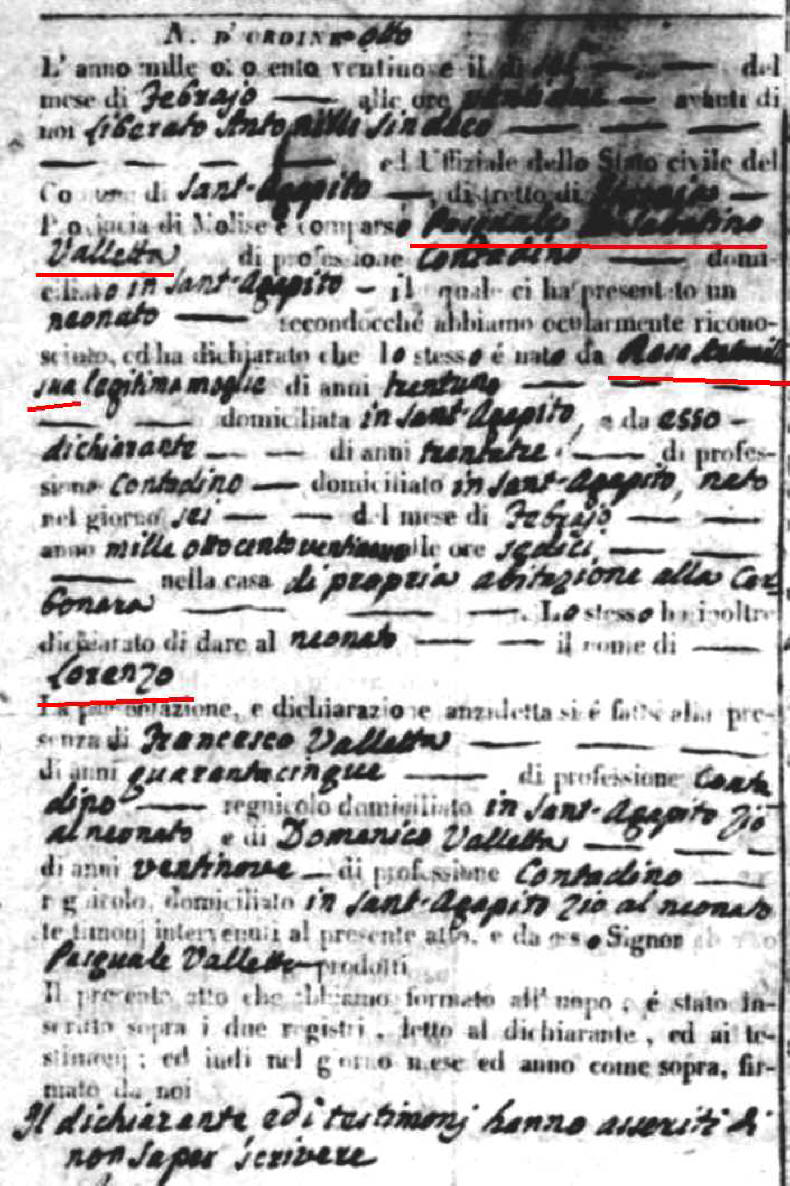 N. D'ORDINE otto
L'anno mille otto cento ventinove il di sei — — del
mese di Febrajo — alle ore ventidue — avanti di
noi Liberato Antonilli Sindaco — — —
— — — — ed Uffiziale dello Stato civile del
Comune di Sant-Agapito — distretto di —
Provincia di Molise è comparso Pasquale Sabatino
Valletta di professione Contadino — domi-
ciliato in Sant-Agapito — il quale ci ha presentato un
neonato — secondocché abbiamo ocularmente ricono-
sciuto, ed ha dichiarato che lo stesso é nato da Rosa
sua legitima moglie di anni trentuno — — —
— — domiciliata in Sant-Agapito, e da esso —
dichiarante — — di anni trentatre — di profes-
sione Contadino — domiciliato in Sant-Agapito, nato
nel giorno sei — — del mese di Febrajo — —
anno mille ottocento ventinove alle ore sedici — —
— nella casa di propria abitazione alla Car-
bonara — — — . Lo stesso ha inoltre
dichiarato di dare al neonato — — il nome di —
Lorenzo
La presentazione, e dichiarazione anzidetta si é fatta alla pre-
senza di Francesco Valletta — — —
di anni quarantacinque — di professione Conta
dino — regnicolo domiciliato in Sant-Agapito Zio
al neonato e di Domenico Valletta — — —
di anni ventinove — di professione Contadino —
regnicolo, domiciliato in Sant-Agapito Zio al neonato
testimonj intervenuti al presente atto, e da esso Signor
Pasquale Valletta prodotti
Il presente atto che abbiamo formato all' uopo, é stato in-
scritto sopra i due registri, letto al dichiarante, ed ai te-
stimonj; ed indi nel giorno mese ed anno come sopra, fir-
mato da noi
Il dichiarante ed i testimonj hanno asseriti di
non saper scrivere